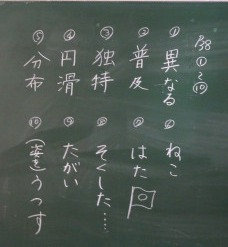 P38 ①〜⑩
① 異なる
② 普及
③ 独特
④ 円滑
⑤ 分布
⑥ ねこ
⑦ はた
⑧ そくした……
⑨ たがい
⑩ (姿を)うつす